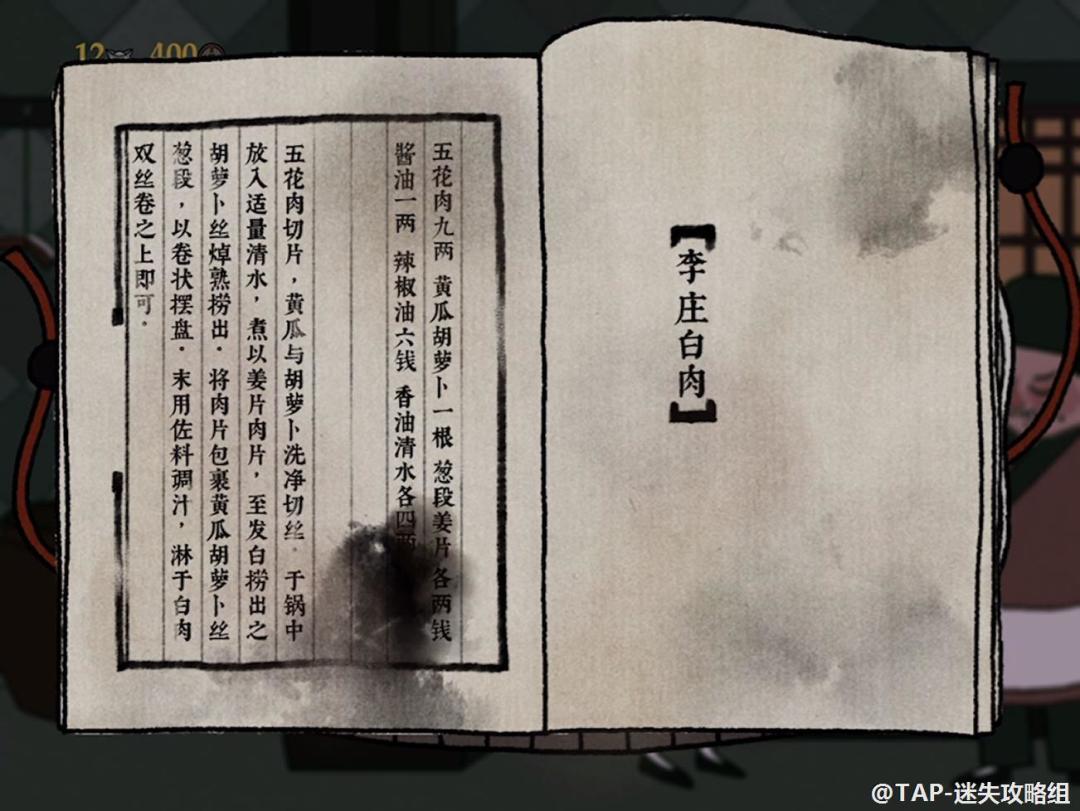 12 400
【李庄白肉】
五花肉九两 黄瓜胡萝卜一根 葱段姜片各两钱
酱油一两 辣椒油六钱 香油清水各四两
五花肉切片，黄瓜与胡萝卜洗净切丝。于锅中
放入适量清水，煮以姜片肉片，至发白捞出之
胡萝卜丝焯熟捞出。将肉片包裹黄瓜胡萝卜丝
葱段，以卷状摆盘。末用佐料调汁，淋于白肉
双丝卷之上即可。
@TAP-迷失攻略组